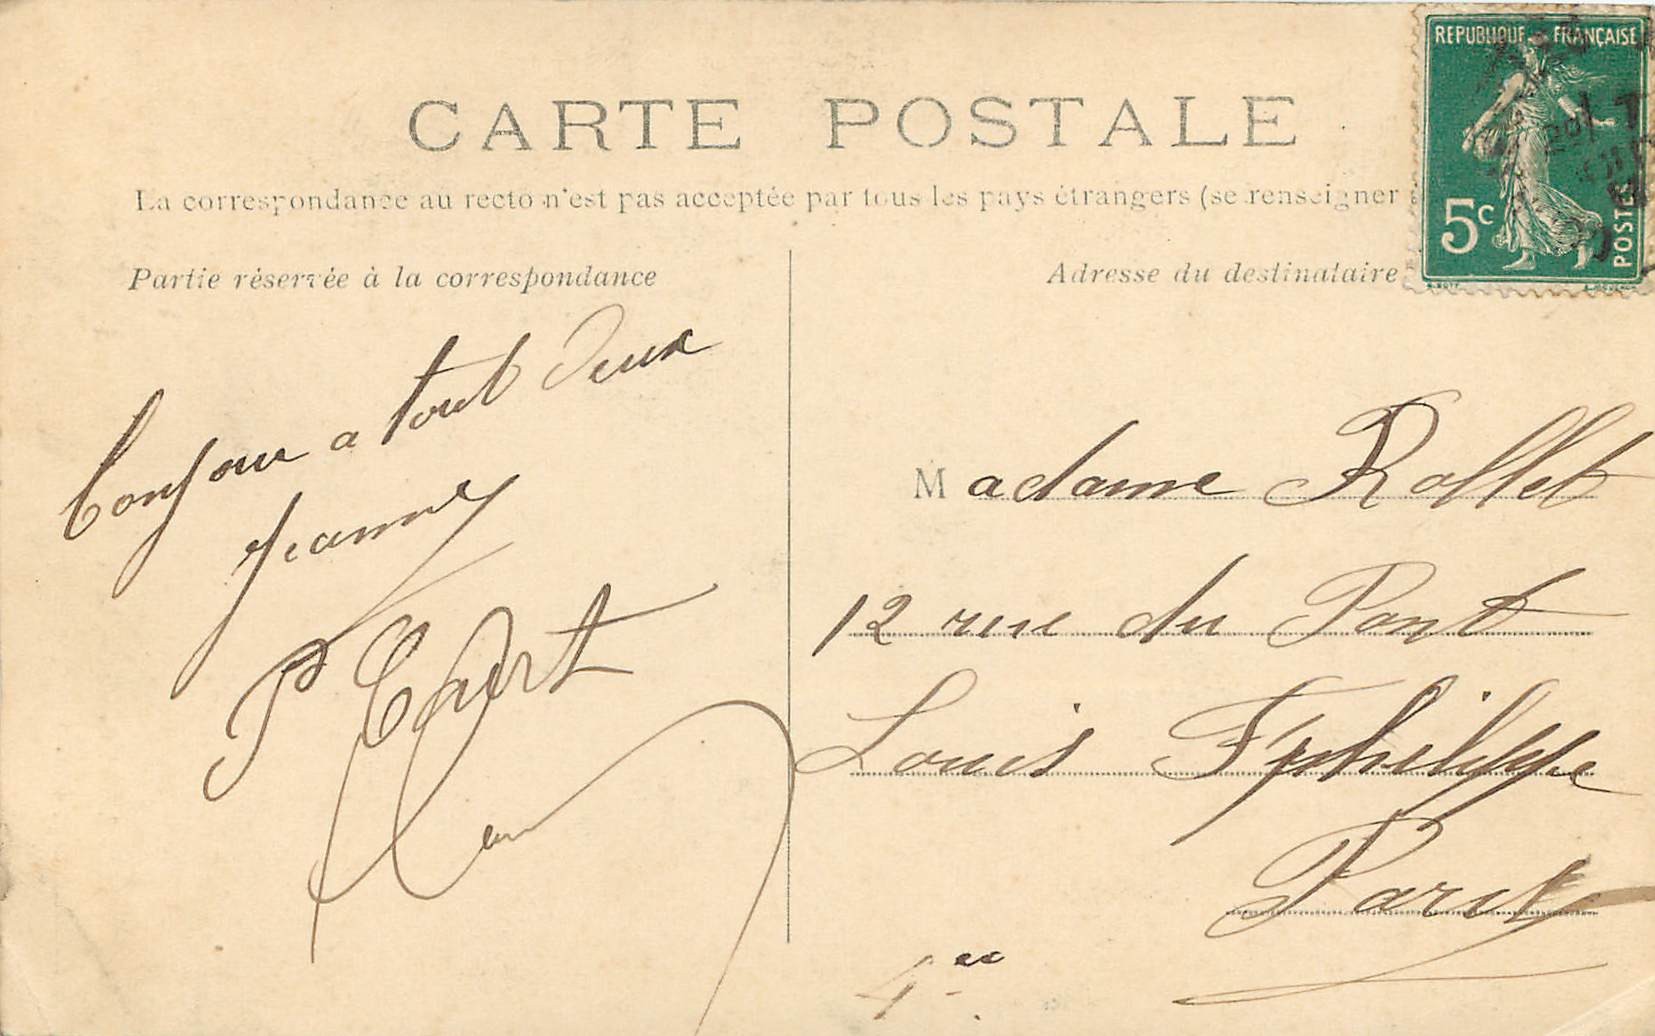 CARTE POSTALE
La correspondance au recto n'est pas acceptée par tous les pays étrangers (se renseigner
Partie réservée à la correspondance
Adresse du destinataire
REPUBLIQUE FRANÇAISE
5c
POSTES
bonjour a tout deux
Jeanne
P
Madame Rollet
12 rue du Pont
Louis Fphilippe
Paris
4ee